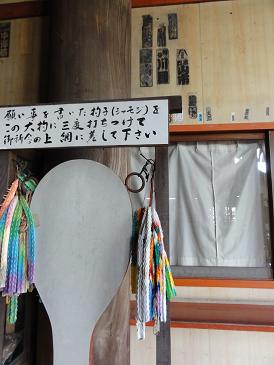 願い事を書いた杓子(シャモジ)を
この大杓に三度打ちつけて
御祈念の上 網に差して下さい